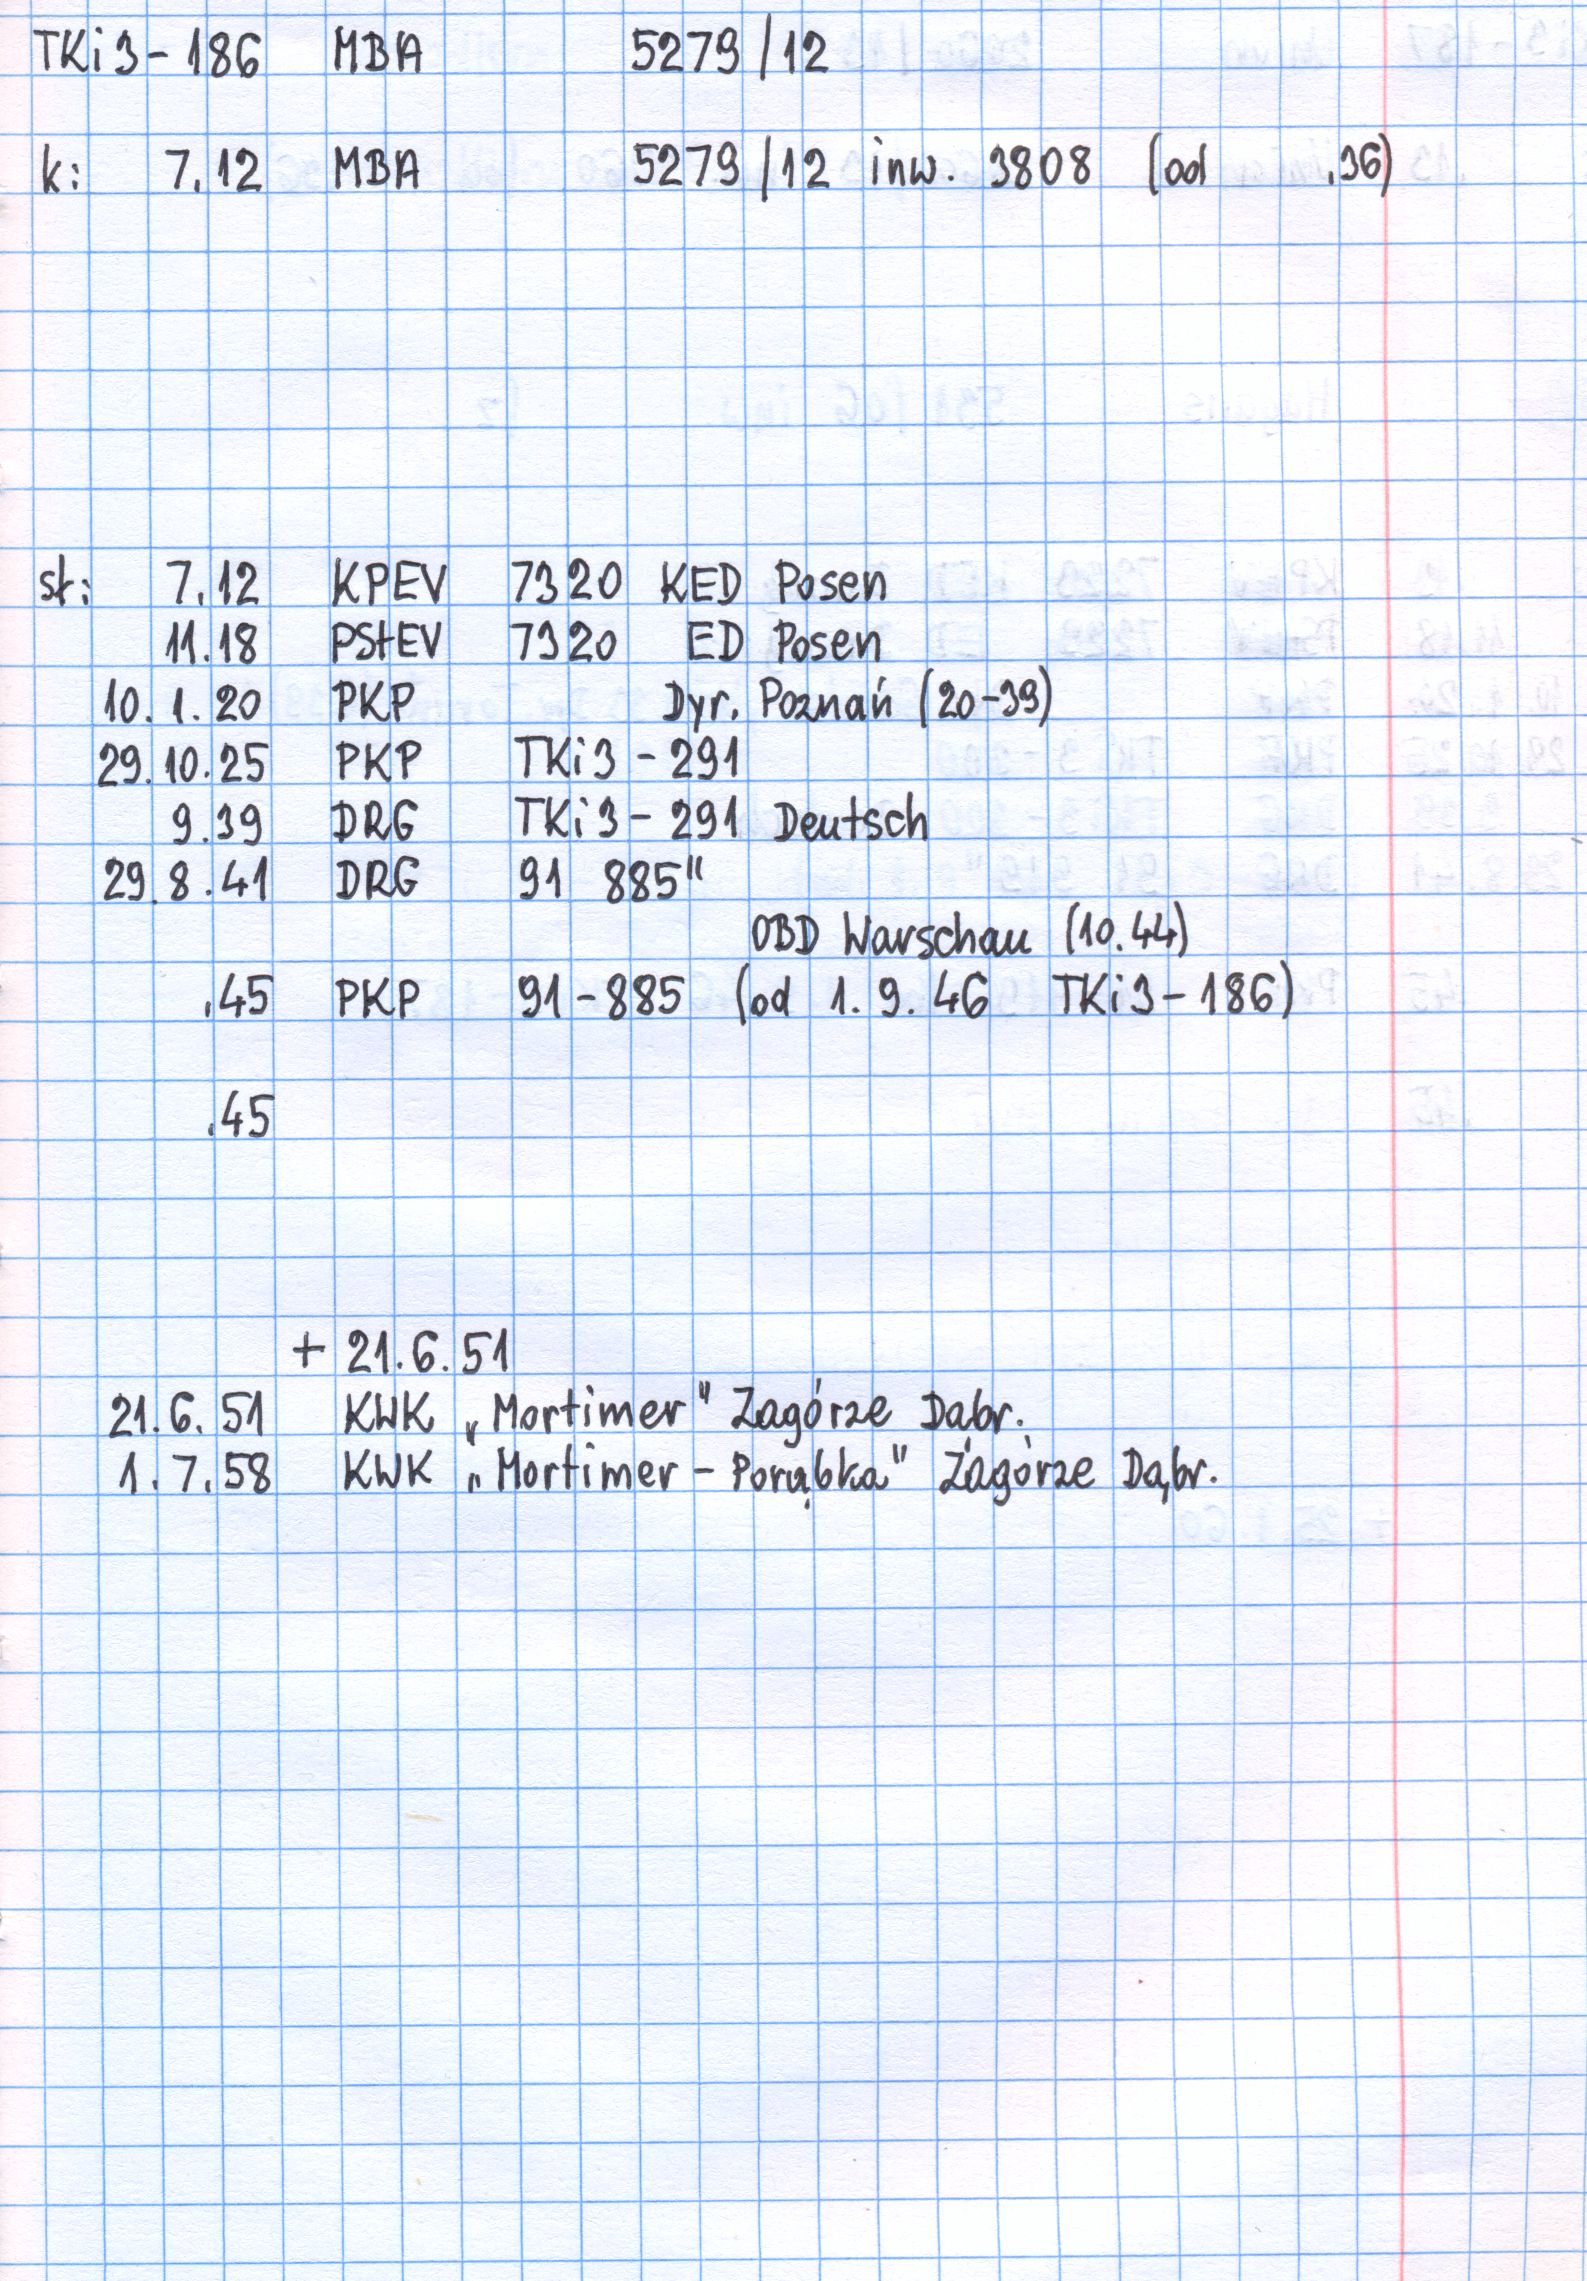 TKi3-186 MBA 5279/12
k: 7.12 MBA 5279/12 inw. 3808 (od .36)
st: 7.12 KPEV 7320 KED Posen
11.18 PStEV 7320 ED Posen
10.1.20 PKP Dyr. Poznań (20-39)
29.10.25 PKP TKi3-291
9.39 DRG TKi3-291 Deutsch
29.8.41 DRG 91 885"
OBD Warschau (10.44)
.45 PKP 91-885 (od 1.9.46 TKi3-186)
.45
+ 21.6.51
21.6.51 KWK „Mortimer" Zagórze Dąbr.
1.7.58 KWK „Mortimer-Porąbka" Zagórze Dąbr.